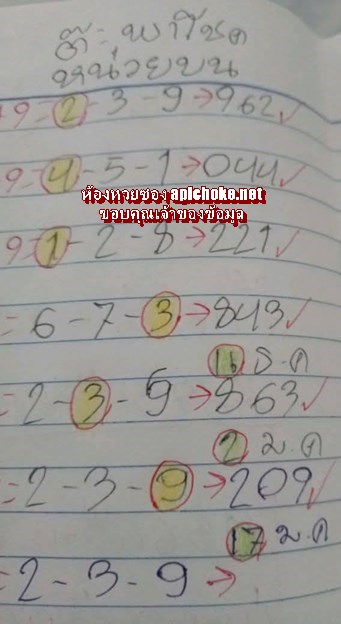 ต๊ะ พาโชค
หน่วยบน
9=2-3-9→962✓
9=4-5-1→044✓
ห้องหายซอง apichoke.net
ขอบคุณเจ้าของข้อมูล
9=1-2-8→221✓
=6-7-3→843✓
16 ธ.ค
=2-3-9→863✓
2 ม.ค
=2-3-9→209✓
17 ม.ค
=2-3-9→